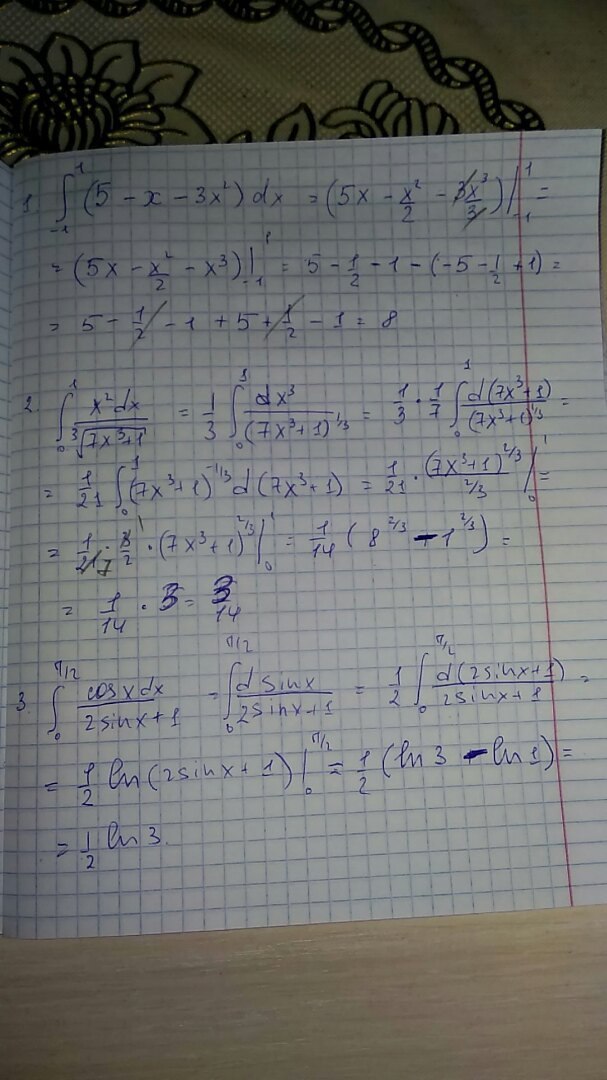 1. ∫₋₁¹ (5 − x − 3x²) dx = (5x − x²/2 − 3x³/3)|₋₁¹ =
= (5x − x²/2 − x³)|₋₁¹ = 5 − 1/2 − 1 − (−5 − 1/2 + 1) =
= 5 − 1/2 − 1 + 5 + 1/2 − 1 = 8
2. ∫₀¹ x²dx/∛(7x³+1) = 1/3 ∫₀¹ dx³/(7x³+1)^(1/3) = 1/3 · 1/7 ∫₀¹ d(7x³+1)/(7x³+1)^(1/3) =
= 1/21 ∫₀¹ (7x³+1)^(−1/3) d(7x³+1) = 1/21 · (7x³+1)^(2/3)/(2/3) |₀¹ =
= 1/21 7 · 3/2 1 · (7x³+1)^(2/3) |₀¹ = 1/14 (8^(2/3) − 1^(2/3)) =
= 1/14 · 3 = 3/14
3. ∫₀^(π/2) cosx dx/(2sinx+1) = ∫₀^(π/2) d sinx/(2sinx+1) = 1/2 ∫₀^(π/2) d(2sinx+1)/(2sinx+1) =
= 1/2 ln(2sinx+1) |₀^(π/2) = 1/2 (ln3 − ln1) =
= 1/2 ln3.